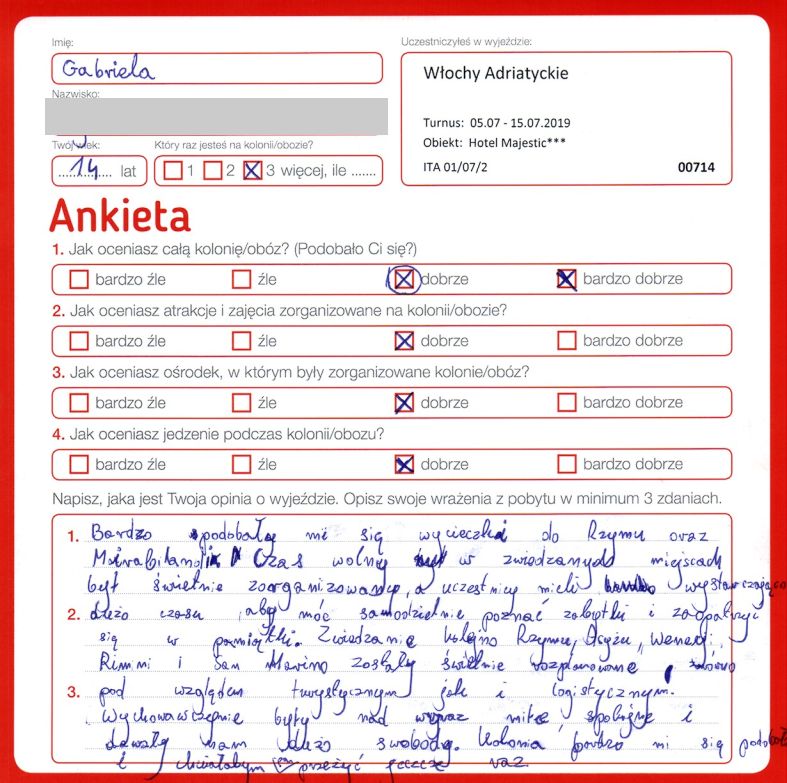 Imię:
Gabriela
Nazwisko:
Twój wiek:
14 lat
Który raz jesteś na kolonii/obozie?
1 2 3 więcej, ile .......
Uczestniczyłeś w wyjeździe:
Włochy Adriatyckie
Turnus: 05.07 - 15.07.2019
Obiekt: Hotel Majestic***
ITA 01/07/2 00714
Ankieta
1. Jak oceniasz całą kolonię/obóz? (Podobało Ci się?)
bardzo źle źle dobrze bardzo dobrze
2. Jak oceniasz atrakcje i zajęcia zorganizowane na kolonii/obozie?
bardzo źle źle dobrze bardzo dobrze
3. Jak oceniasz ośrodek, w którym były zorganizowane kolonie/obóz?
bardzo źle źle dobrze bardzo dobrze
4. Jak oceniasz jedzenie podczas kolonii/obozu?
bardzo źle źle dobrze bardzo dobrze
Napisz, jaka jest Twoja opinia o wyjeździe. Opisz swoje wrażenia z pobytu w minimum 3 zdaniach.
1. Bardzo podobały mi się wycieczki do Rzymu oraz
Czas wolny w zwiedzanych miejscach
był świetnie zoorganizowany, a uczestnicy mieli wystarczająco
2. dużo czasu, aby móc samodzielnie poznać zabytki i zaopatrzyć
się w pamiątki. Zwiedzanie kolejno Rzymu, Asyżu, Wenecji,
Rimini i San Marino zostały świetnie rozplanowane
3. pod względem turystycznym jak i logistycznym.
Wychowawczynie były nad wyraz miłe, spokojne i
dawały nam dużo swobody. Kolonia bardzo mi się podobała
i chciałabym przeżyć jeszcze raz.